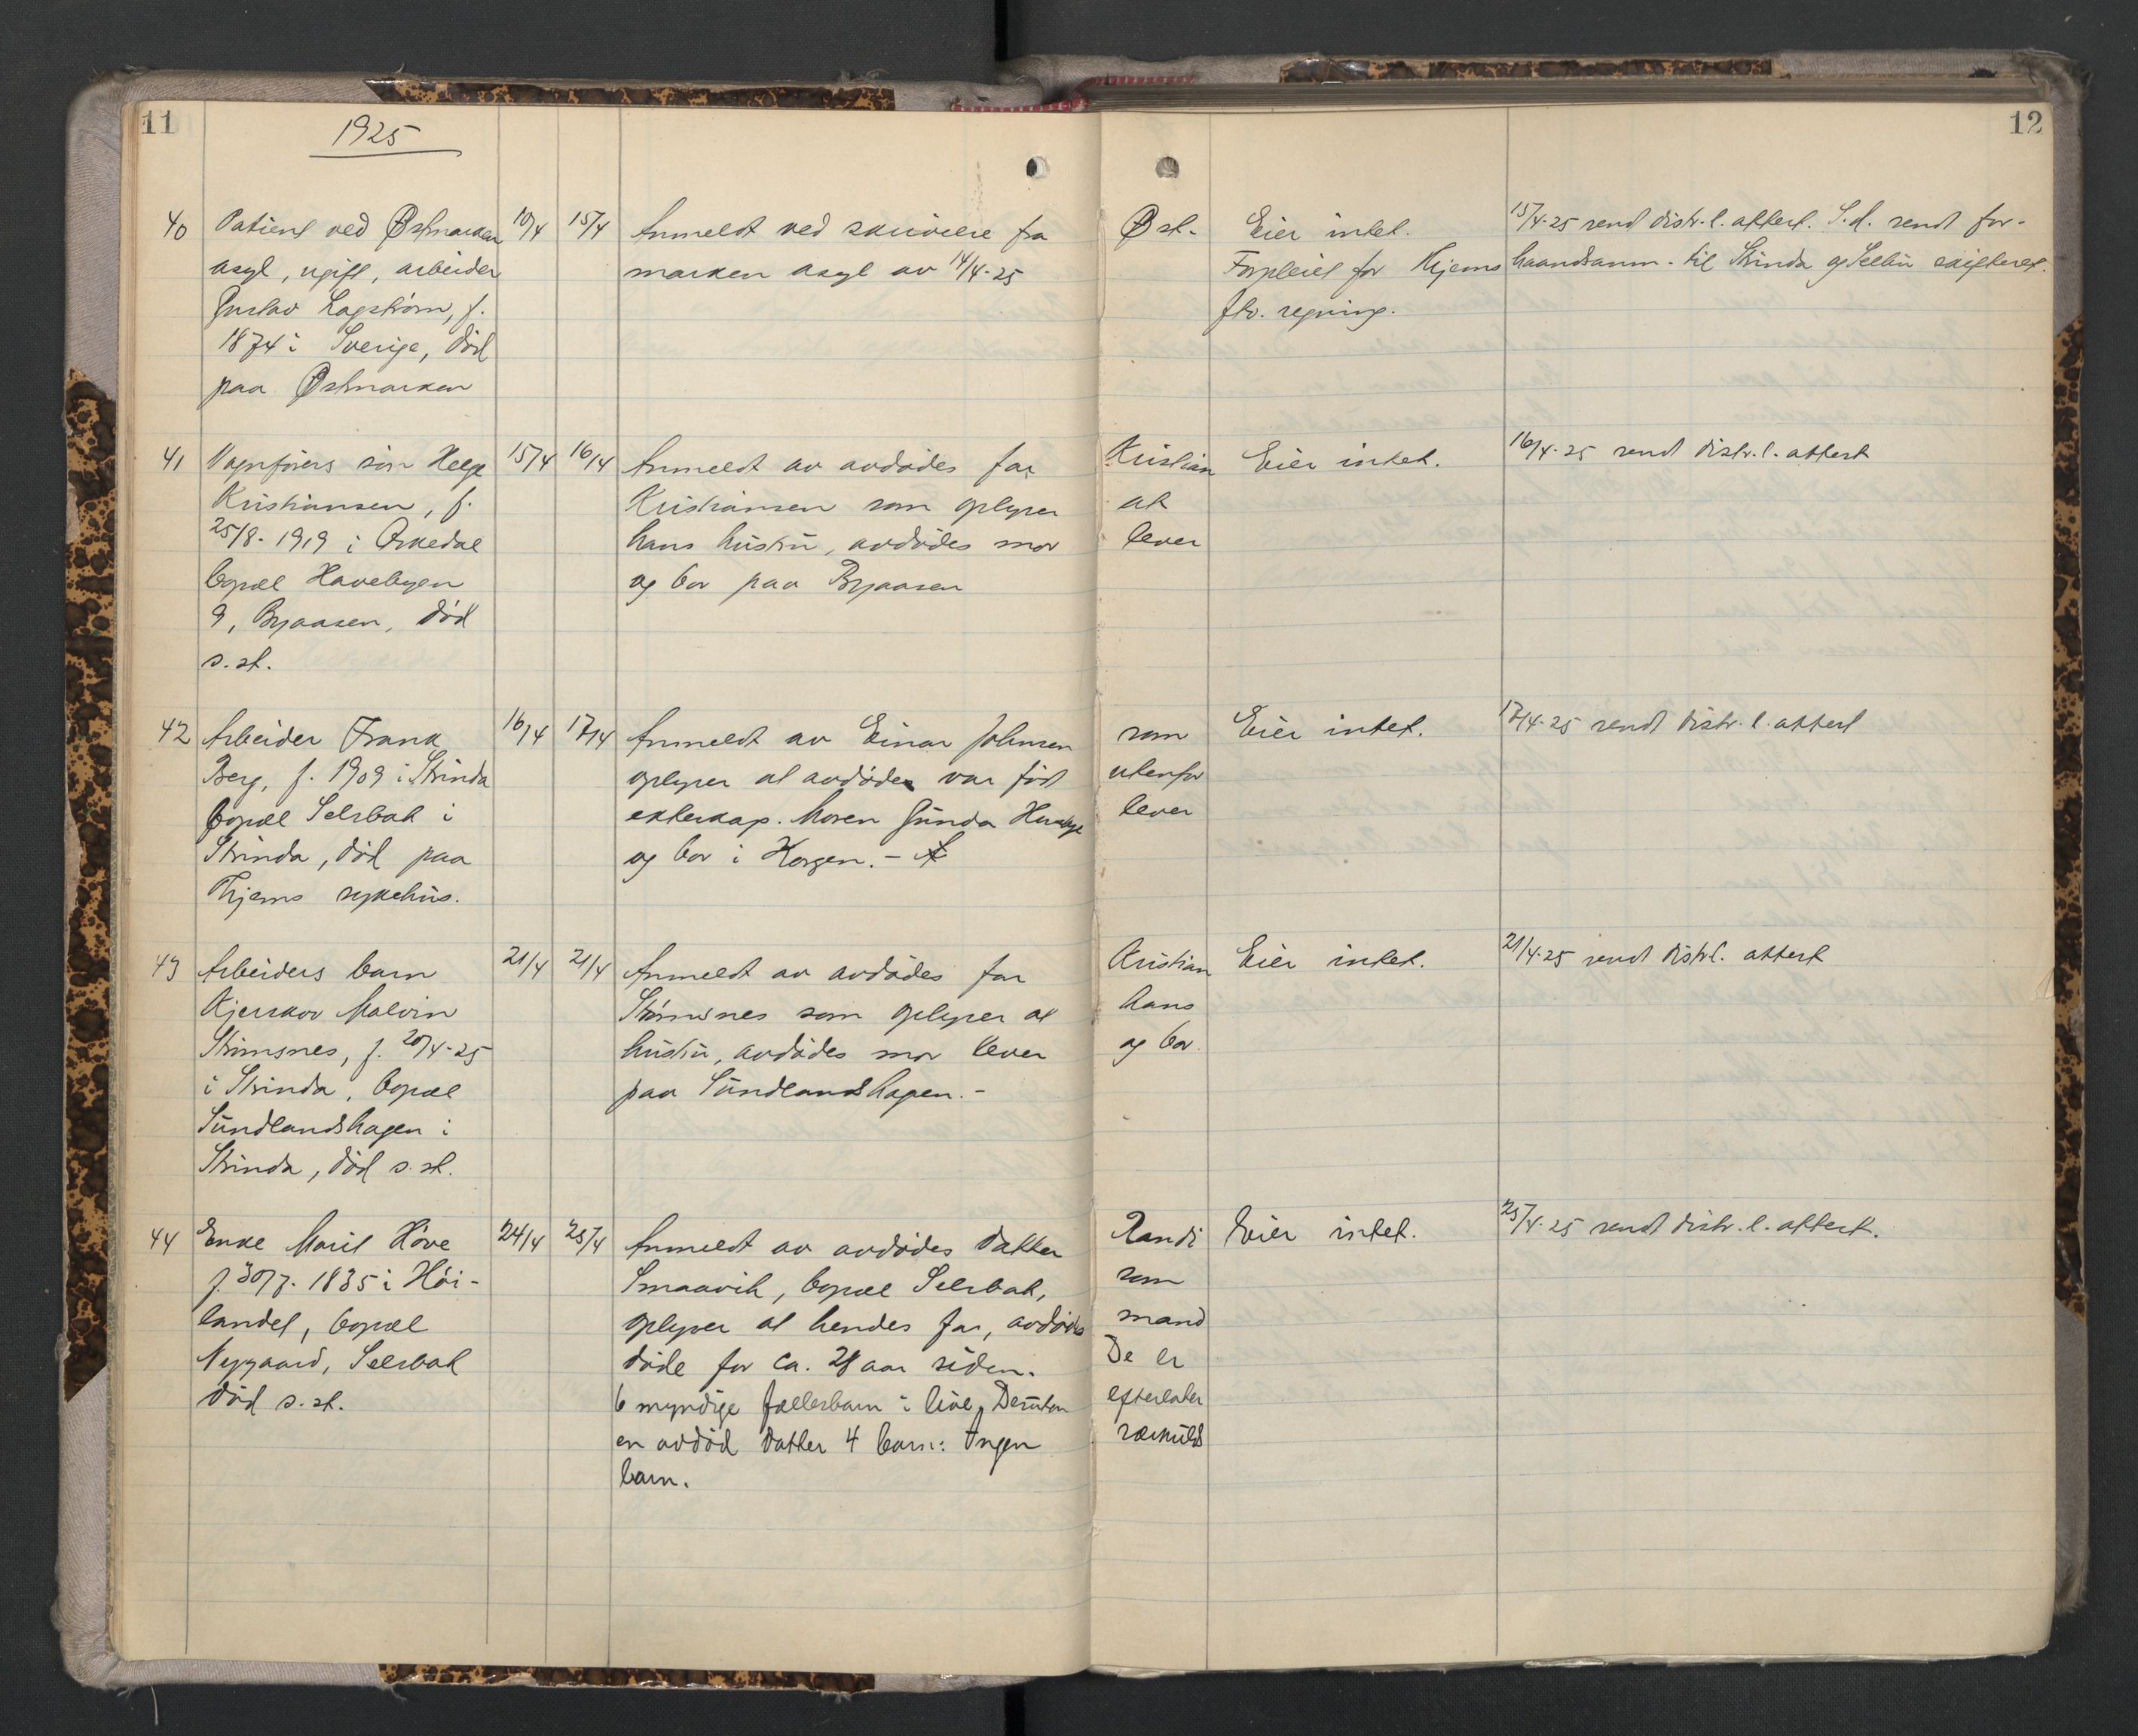 11
12
1925
40 Patient ved Østmarken 10/4 15/4 Anmeldt ved skrivelse fra Øst- Eier intet. 15/4-25 sendt distr.l. attest. S.d. sendt for-
asyl, ugift, arbeider marken asyl av 14/4-25 Forpleiet for Thjems haandsanm. til Strinda og Selbu skifteret.
Gustav Lagstrøm, f. ftv. regning.
1874 i Sverige, død
paa Østmarken
41 Vognførers søn Helge 15/4 16/4 Anmeldt av avdødes far Kristian Eier intet. 16/4-25 sendt distr.l. attest
Kristiansen, f. Kristiansen som oplyser at
25/8-1919 i Orkedal hans hustru, avdødes mor lever
bopæl Havebyen og bor paa Byaasen
9, Byaasen, død
s.st.
42 Arbeider Frank 16/4 17/4 Anmeldt av Einar Johnsen som Eier intet. 17/4-25 sendt distr.l. attest
Berg, f. 1909 i Strinda oplyser at avdøde var født utenfor
bopæl Selsbak i ekteskap. Moren Gunda lever
Strinda, død paa og bor i Horgen. -
Thjems sykehus.
43 Arbeiders barn 21/4 21/4 Anmeldt av avdødes far Kristian Eier intet. 21/4-25 sendt distr.l. attest
Malvin Strømsnes som oplyser at hans
Strømsnes, f. 20/4-25 hustru, avdødes mor lever og bor
i Strinda, bopæl paa Sundlandshagen. -
Sundlandshagen i
Strinda, død s.st.
44 Enke Marit Høve 24/4 25/4 Anmeldt av avdødes datter Randi Eier intet. 25/4-25 sendt distr.l. attest.
f. 30/7-1835 i Høi- Smaavik, bopæl Selsbak, som
landet, bopæl oplyser at hendes far, avdødes mand
Nygaard, Selsbak døde for ca. 28 aar siden. De er
død s.st. 6 myndige fællesbarn i live, Desuten efterlater
en avdød datter 4 barn. Ingen særkulds
barn.